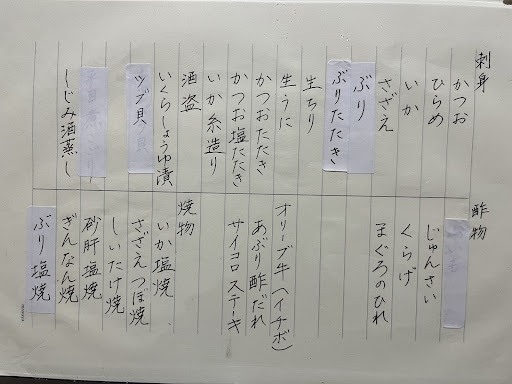 刺身
かつお
ひらめ
いか
さざえ
ぶり
ぶりたたき
生ちり
生うに
かつおたたき
かつお塩たたき
いか糸造り
酒盗
いくらしょうゆ漬
ツブ貝
しじみ酒蒸し
酢物
じゅんさい
くらげ
まぐろのひれ
オリーブ牛(イチボ)
あぶり酢だれ
サイコロステーキ
焼物
いか塩焼
さざえつぼ焼
しいたけ焼
砂肝塩焼
ぎんなん焼
ぶり塩焼